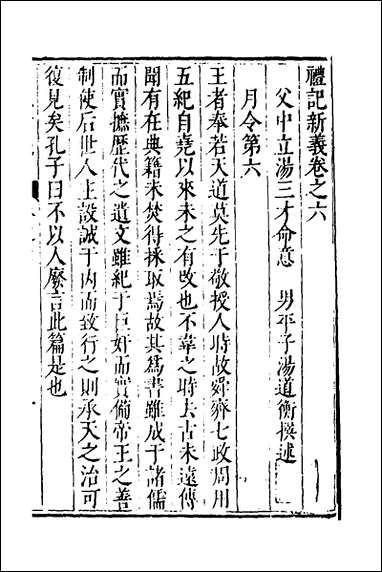 禮記新義卷之六
父中立湯三才命意　男平子湯道衡撰述
月令第六
王者奉若天道莫先于敬授人時故舜齊七政周用
五紀自堯以來未之有改也不韋之時去古未遠傳
聞有在典籍未焚得採取焉故其爲書雖成于諸儒
而實摭歷代之遺文雖紀于巨奸而實備帝王之善
制使后世人主設誠于內而致行之則承天之治可
復見矣孔子曰不以人廢言此篇是也